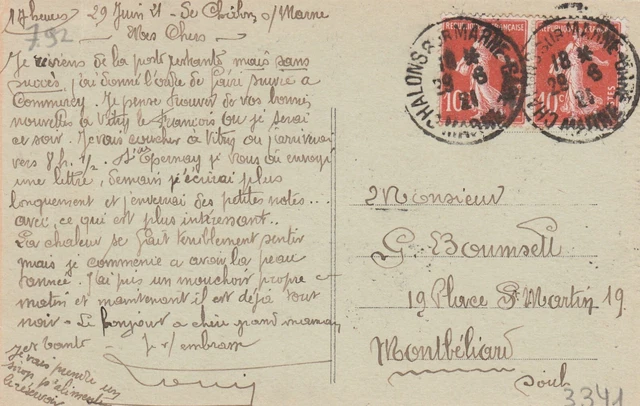 17 heures 29 Juin 21 - De Châlons s/Marne
792
Mes Chers
Je reviens de la poste restante mais sans
succès, j'ai donné l'ordre de faire suivre à
Commercy. Je pense trouver de vos bonnes
nouvelles à Vitry le François où je serai
ce soir. Je vais coucher à Vitry où j'arriverai
vers 8 h. 1/2. D'Epernay je vous ai envoyé
une lettre, demain j'écrirai plus
longuement et j'enverrai des petites notes...
avec ce qui est plus intéressant..
La chaleur se fait terriblement sentir
mais je commence à avoir la peau
tannée. J'ai pris un mouchoir propre ce
matin et maintenant il est déjà tout
noir. Le bonjour à chère grand maman
je v/ embrasse
Je vais prendre un
sirop p/ alimenter
le réservoir
REPUBLIQUE FRANÇAISE
10c
POSTES
CHALONS SUR MARNE
MARNE
18
29 6
21
REPUBLIQUE FRANÇAISE
10c
POSTES
CHALONS SUR MARNE
MARNE
18
29 6
21
Monsieur
G. Boumsell
19 Place St Martin 19
Montbéliard
3341